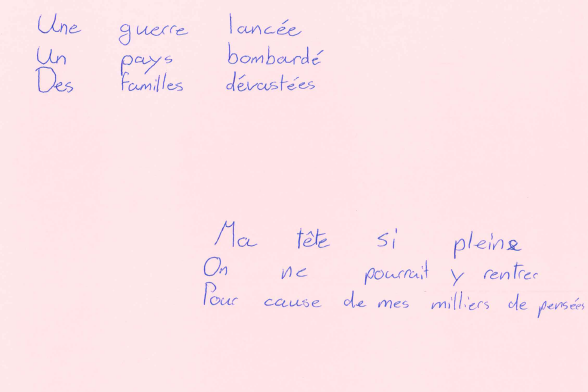 Une guerre lancée
Un pays bombardé
Des familles dévastées
Ma tête si pleine
On ne pourrait y rentrer
Pour cause de mes milliers de pensées